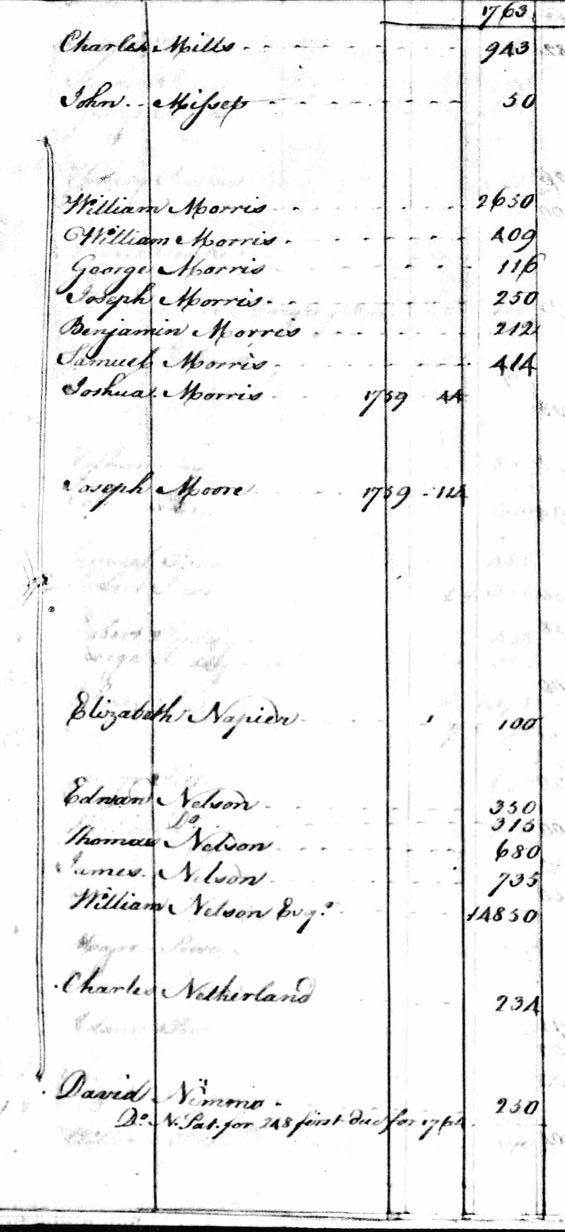 1763
Charles Mills 943
John Missep 50
William Morris 2650
William Morris 409
George Morris 116
Joseph Morris 250
Benjamin Morris 212
Samuel Morris 414
Joshua Morris 1759 44
Joseph Moore 1759 114
Elizabeth Napier 100
Edward Nelson 350
Do 315
Thomas Nelson 680
James Nelson 735
William Nelson Esqr 14850
Charles Netherland 234
David Nimmo 250
Do N. Pat. for 248 first due for